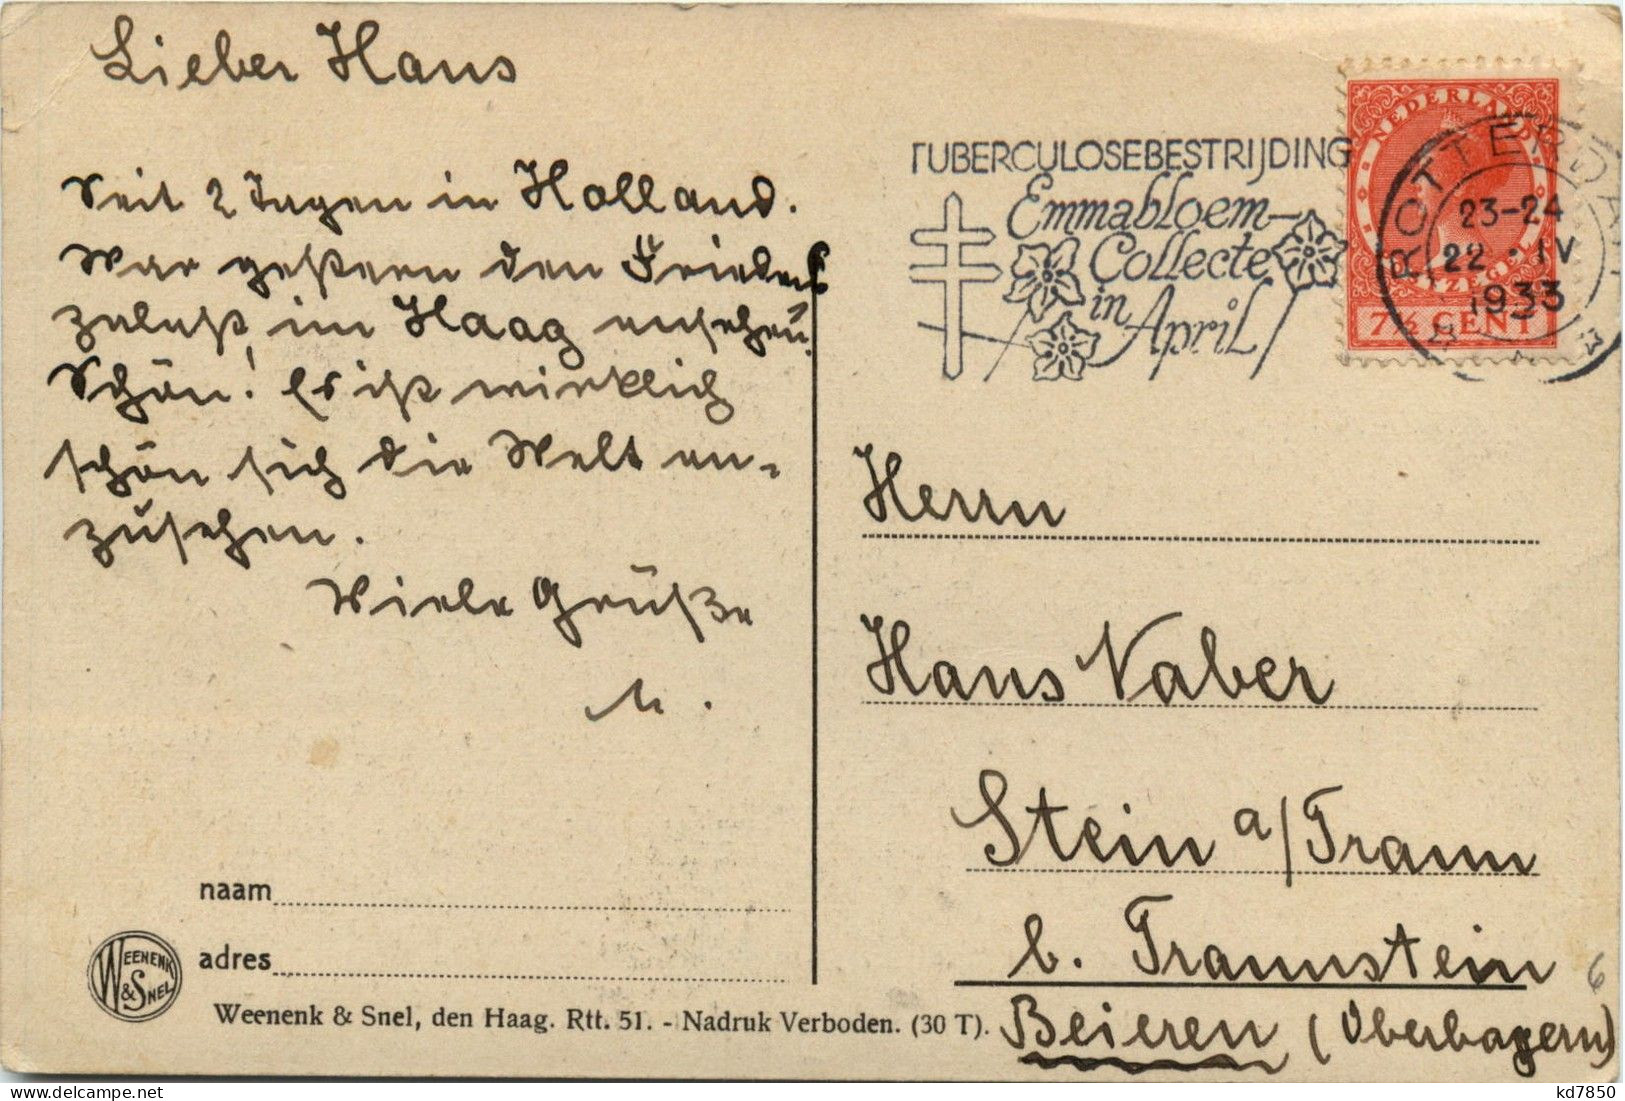 Lieber Hans
Seit 2 Tagen in Holland.
War gestern den Friedens
palast im Haag ansehen.
Schön! Es ist wirklich
schön sich die Welt an-
zusehen.
Viele Grüße
M.
naam
adres
WEENENK
& SNEL
Weenenk & Snel, den Haag. Rtt. 51. - Nadruk Verboden. (30 T).
TUBERCULOSEBESTRIJDING
Emmabloem-
Collecte
in
April
NEDERLAND
7½ CENT
ROTTERDAM
23-24
22 · IV
1933
Herrn
Hans Vaber
Stein a/Traun
b. Traunstein
Beieren (Oberbayern)
6
kd7850